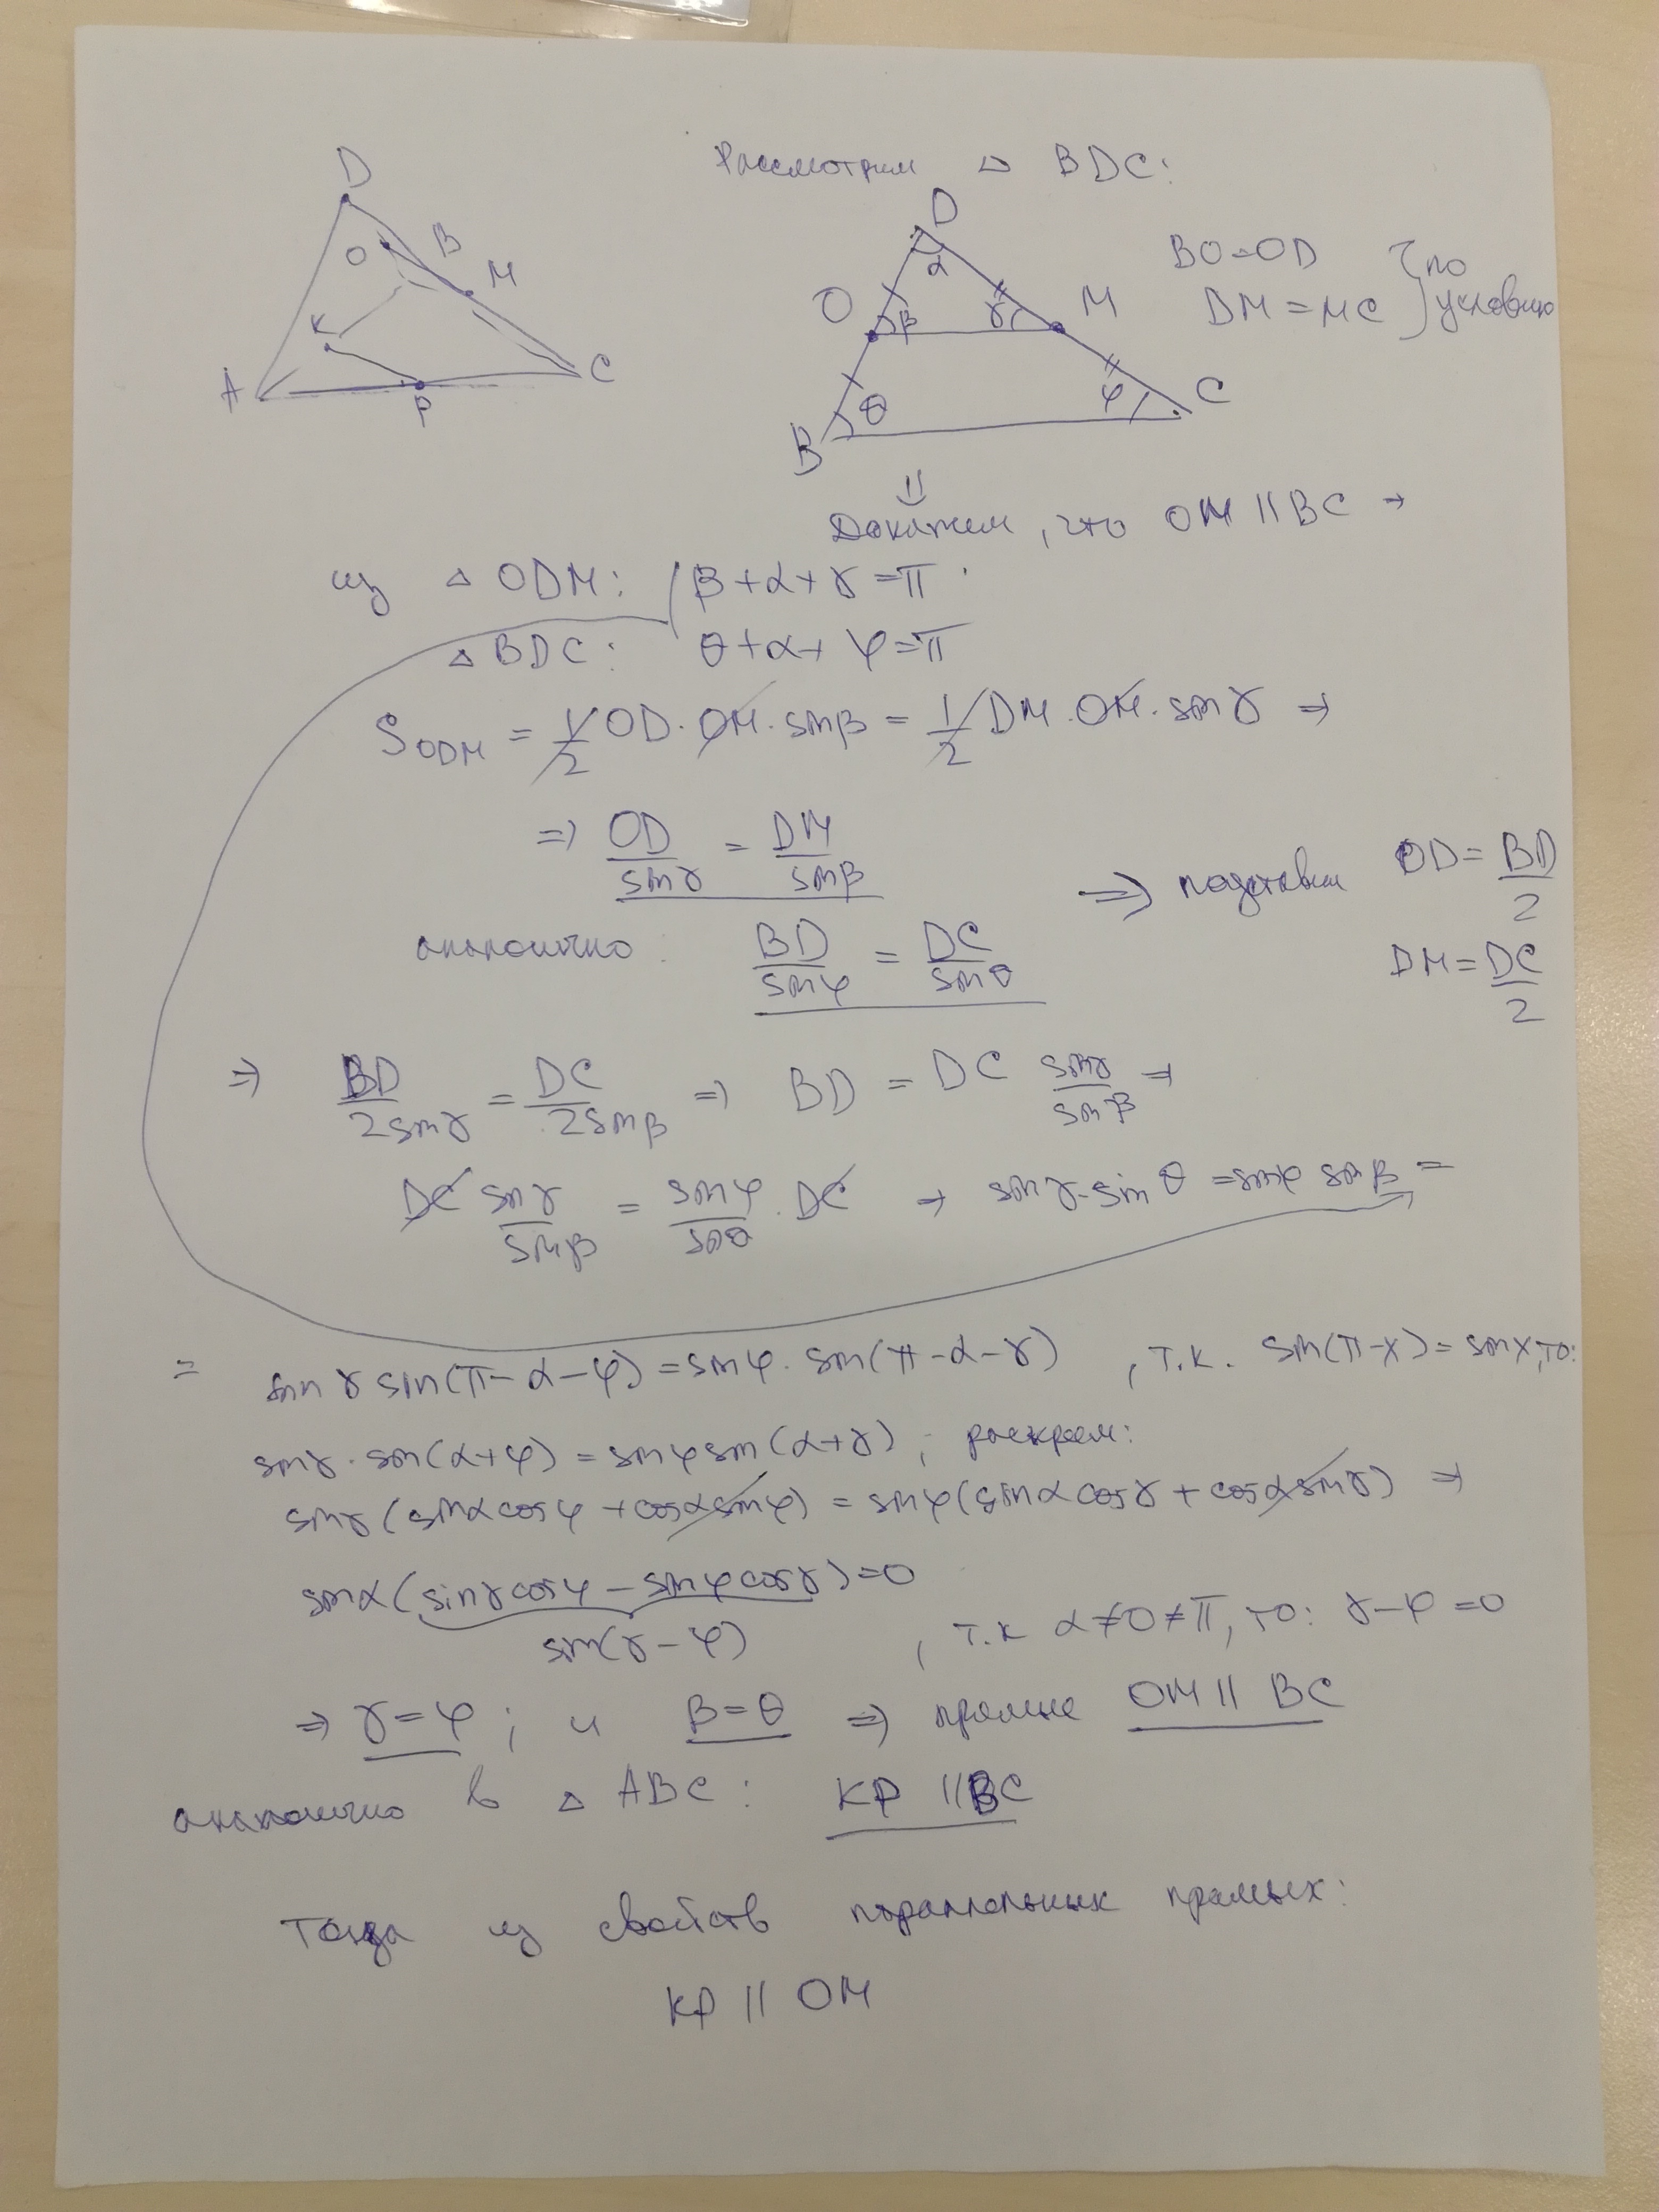 D
O
B
M
K
A
P
C
Рассмотрим △ BDC:
D
α
O
β
γ
M
B
θ
φ
C
BO=OD
DM=MC } по условию
⇓
Докажем, что OM || BC →
из △ ODM: β+α+γ=π
△ BDC: θ+α+φ=π
S_ODM = 1/2 OD · OM · sinβ = 1/2 DM · OM · sinγ ⇒
⇒ OD/sinγ = DM/sinβ
аналогично: BD/sinφ = DC/sinθ
⇒ подставим OD = BD/2
DM = DC/2
⇒ BD/2sinγ = DC/2sinβ ⇒ BD = DC sinγ/sinβ ⇒
DC sinγ/sinβ = sinφ/sinθ · DC ⇒ sinγ · sinθ = sinφ sinβ =
= sinγ sin(π-α-φ) = sinφ · sin(π-α-γ) , т.к. sin(π-x) = sinx, то:
sinγ · sin(α+φ) = sinφ sin(α+γ) ; раскроем:
sinγ (sinα cosφ + cosα sinφ) = sinφ (sinα cosγ + cosα sinγ) ⇒
sinα (sinγ cosφ - sinφ cosγ) = 0
sin(γ-φ) , т.к α≠0≠π, то: γ-φ=0
⇒ γ=φ ; и β=θ ⇒ прямые OM || BC
аналогично в △ ABC: KP || BC
Тогда из свойств параллельных прямых:
KP || OM